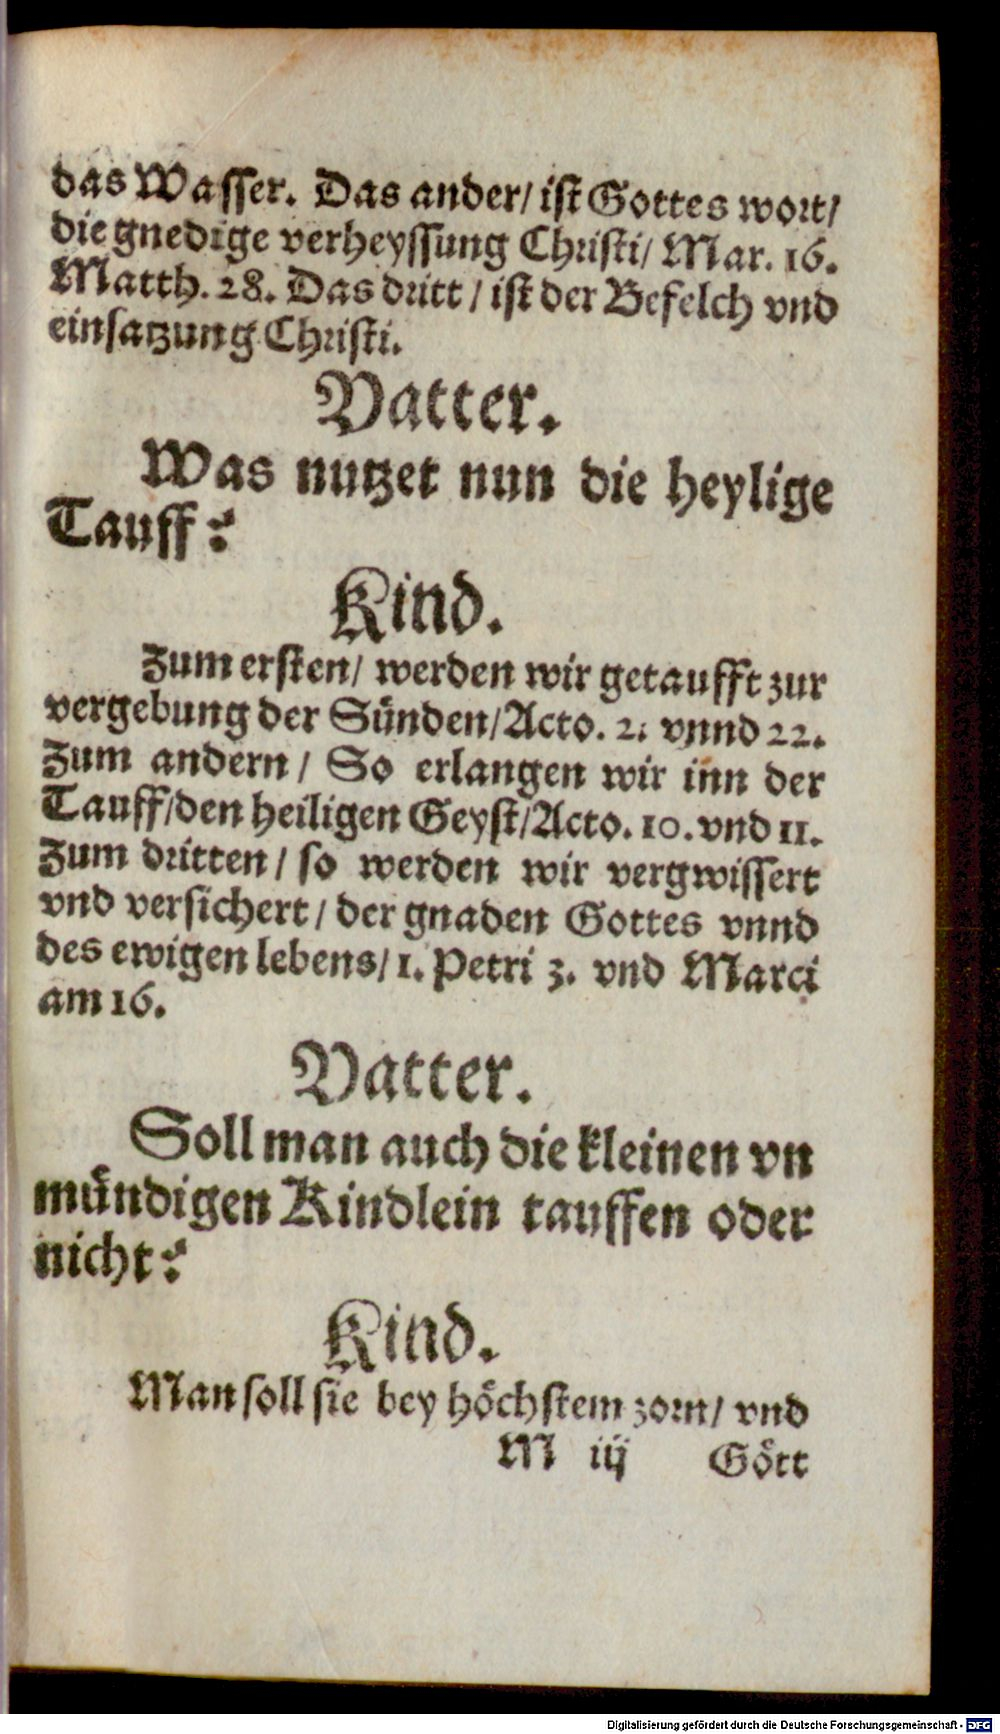 das Wasser. Das ander/ ist Gottes wort/
die gnedige verheyssung Christi/ Mar. 16.
Matth. 28. Das dritt / ist der Befelch vnd
einsatzung Christi.
Vatter.
Was nutzet nun die heylige
Tauff?
Kind.
Zum ersten/ werden wir getaufft zur
vergebung der Sünden/Acto. 2. vnnd 22.
Zum andern / So erlangen wir inn der
Tauff/den heiligen Geyst/Acto. 10. vnd 11.
Zum dritten / so werden wir vergwissert
vnd versichert / der gnaden Gottes vnnd
des ewigen lebens/ 1. Petri 3. vnd Marci
am 16.
Vatter.
Soll man auch die kleinen vn
mündigen Kindlein tauffen oder
nicht?
Kind.
Man soll sie bey höchstem zorn/ vnd
M iij Gött
Digitalisierung gefördert durch die Deutsche Forschungsgemeinschaft - DFG